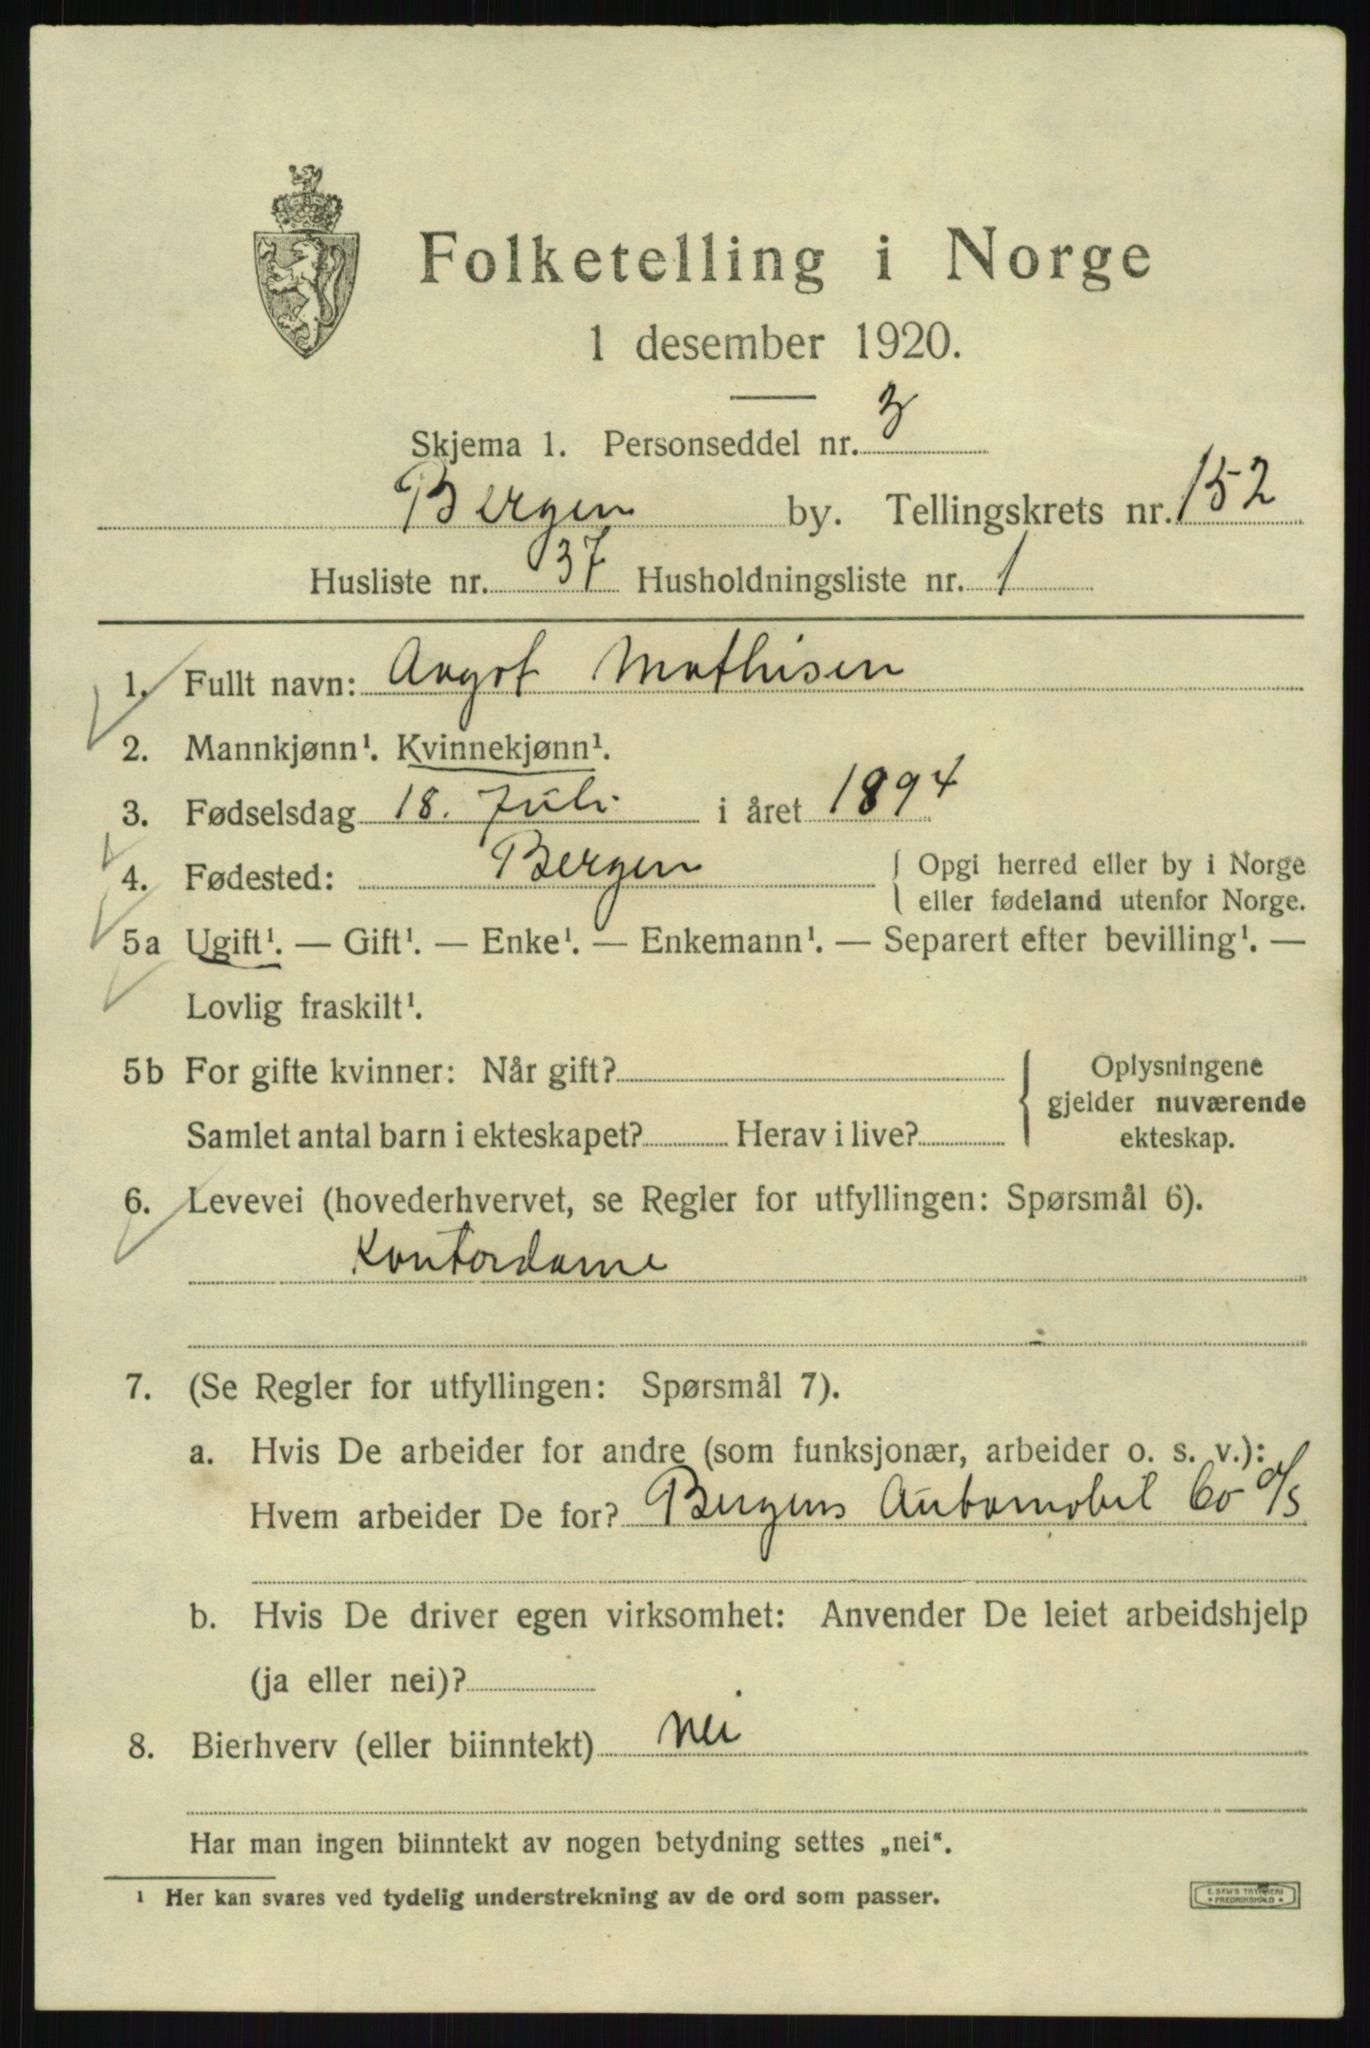 Folketelling i Norge
1 desember 1920.
Skjema 1. Personseddel nr. 3
Bergen by. Tellingskrets nr. 152
Husliste nr. 37 Husholdningsliste nr. 1
1. Fullt navn: Aagot Mathisen
2. Mannkjønn¹. Kvinnekjønn¹.
3. Fødselsdag 18. Juli i året 1894
4. Fødested: Bergen { Opgi herred eller by i Norge
eller fødeland utenfor Norge.
5a Ugift¹. — Gift¹. — Enke¹. — Enkemann¹. — Separert efter bevilling¹. —
Lovlig fraskilt¹.
5b For gifte kvinner: Når gift? { Oplysningene
gjelder nuværende
Samlet antal barn i ekteskapet? Herav i live? ekteskap.
6. Levevei (hovederhvervet, se Regler for utfyllingen: Spørsmål 6).
Kontordame
7. (Se Regler for utfyllingen: Spørsmål 7).
a. Hvis De arbeider for andre (som funksjonær, arbeider o. s. v.):
Hvem arbeider De for? Bergens Automobil Co a/s
b. Hvis De driver egen virksomhet: Anvender De leiet arbeidshjelp
(ja eller nei)?
8. Bierhverv (eller biinntekt) nei
Har man ingen biinntekt av nogen betydning settes „nei“.
¹ Her kan svares ved tydelig understrekning av de ord som passer.